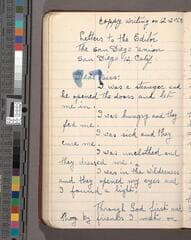 Letters to the Editor
The San Diego Union
San Diego 12, Calif
I was a stranger and
he opened the doors and let
me in.
I was hungry and they
fed me.
I was sick and they
cure me.
I was unclothed and
they dressed me.
I was in the wilderness
and they opened my eyes and
I found a light.
Through God first and
by friends I met on